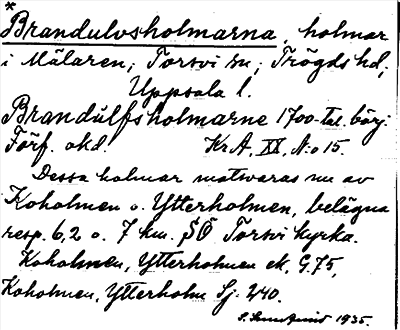 *
Brandulvsholmarna, holmar
i Mälaren; Torsvi sn; Trögds hd;
Uppsala l.
Brandulfsholmarne 1700-tal. börj.
Förf. okd. Kr.A, XX, N:o 15.
Dessa holmar motsvaras nu av
Koholmen o. Ytterholmen, belägna
resp. 6,2 o. 7 km. SÖ Torsvi kyrka.
Koholmen, Ytterholmen ek, G.75,
Koholmen, Ytterholm Sj. 240.
1935.